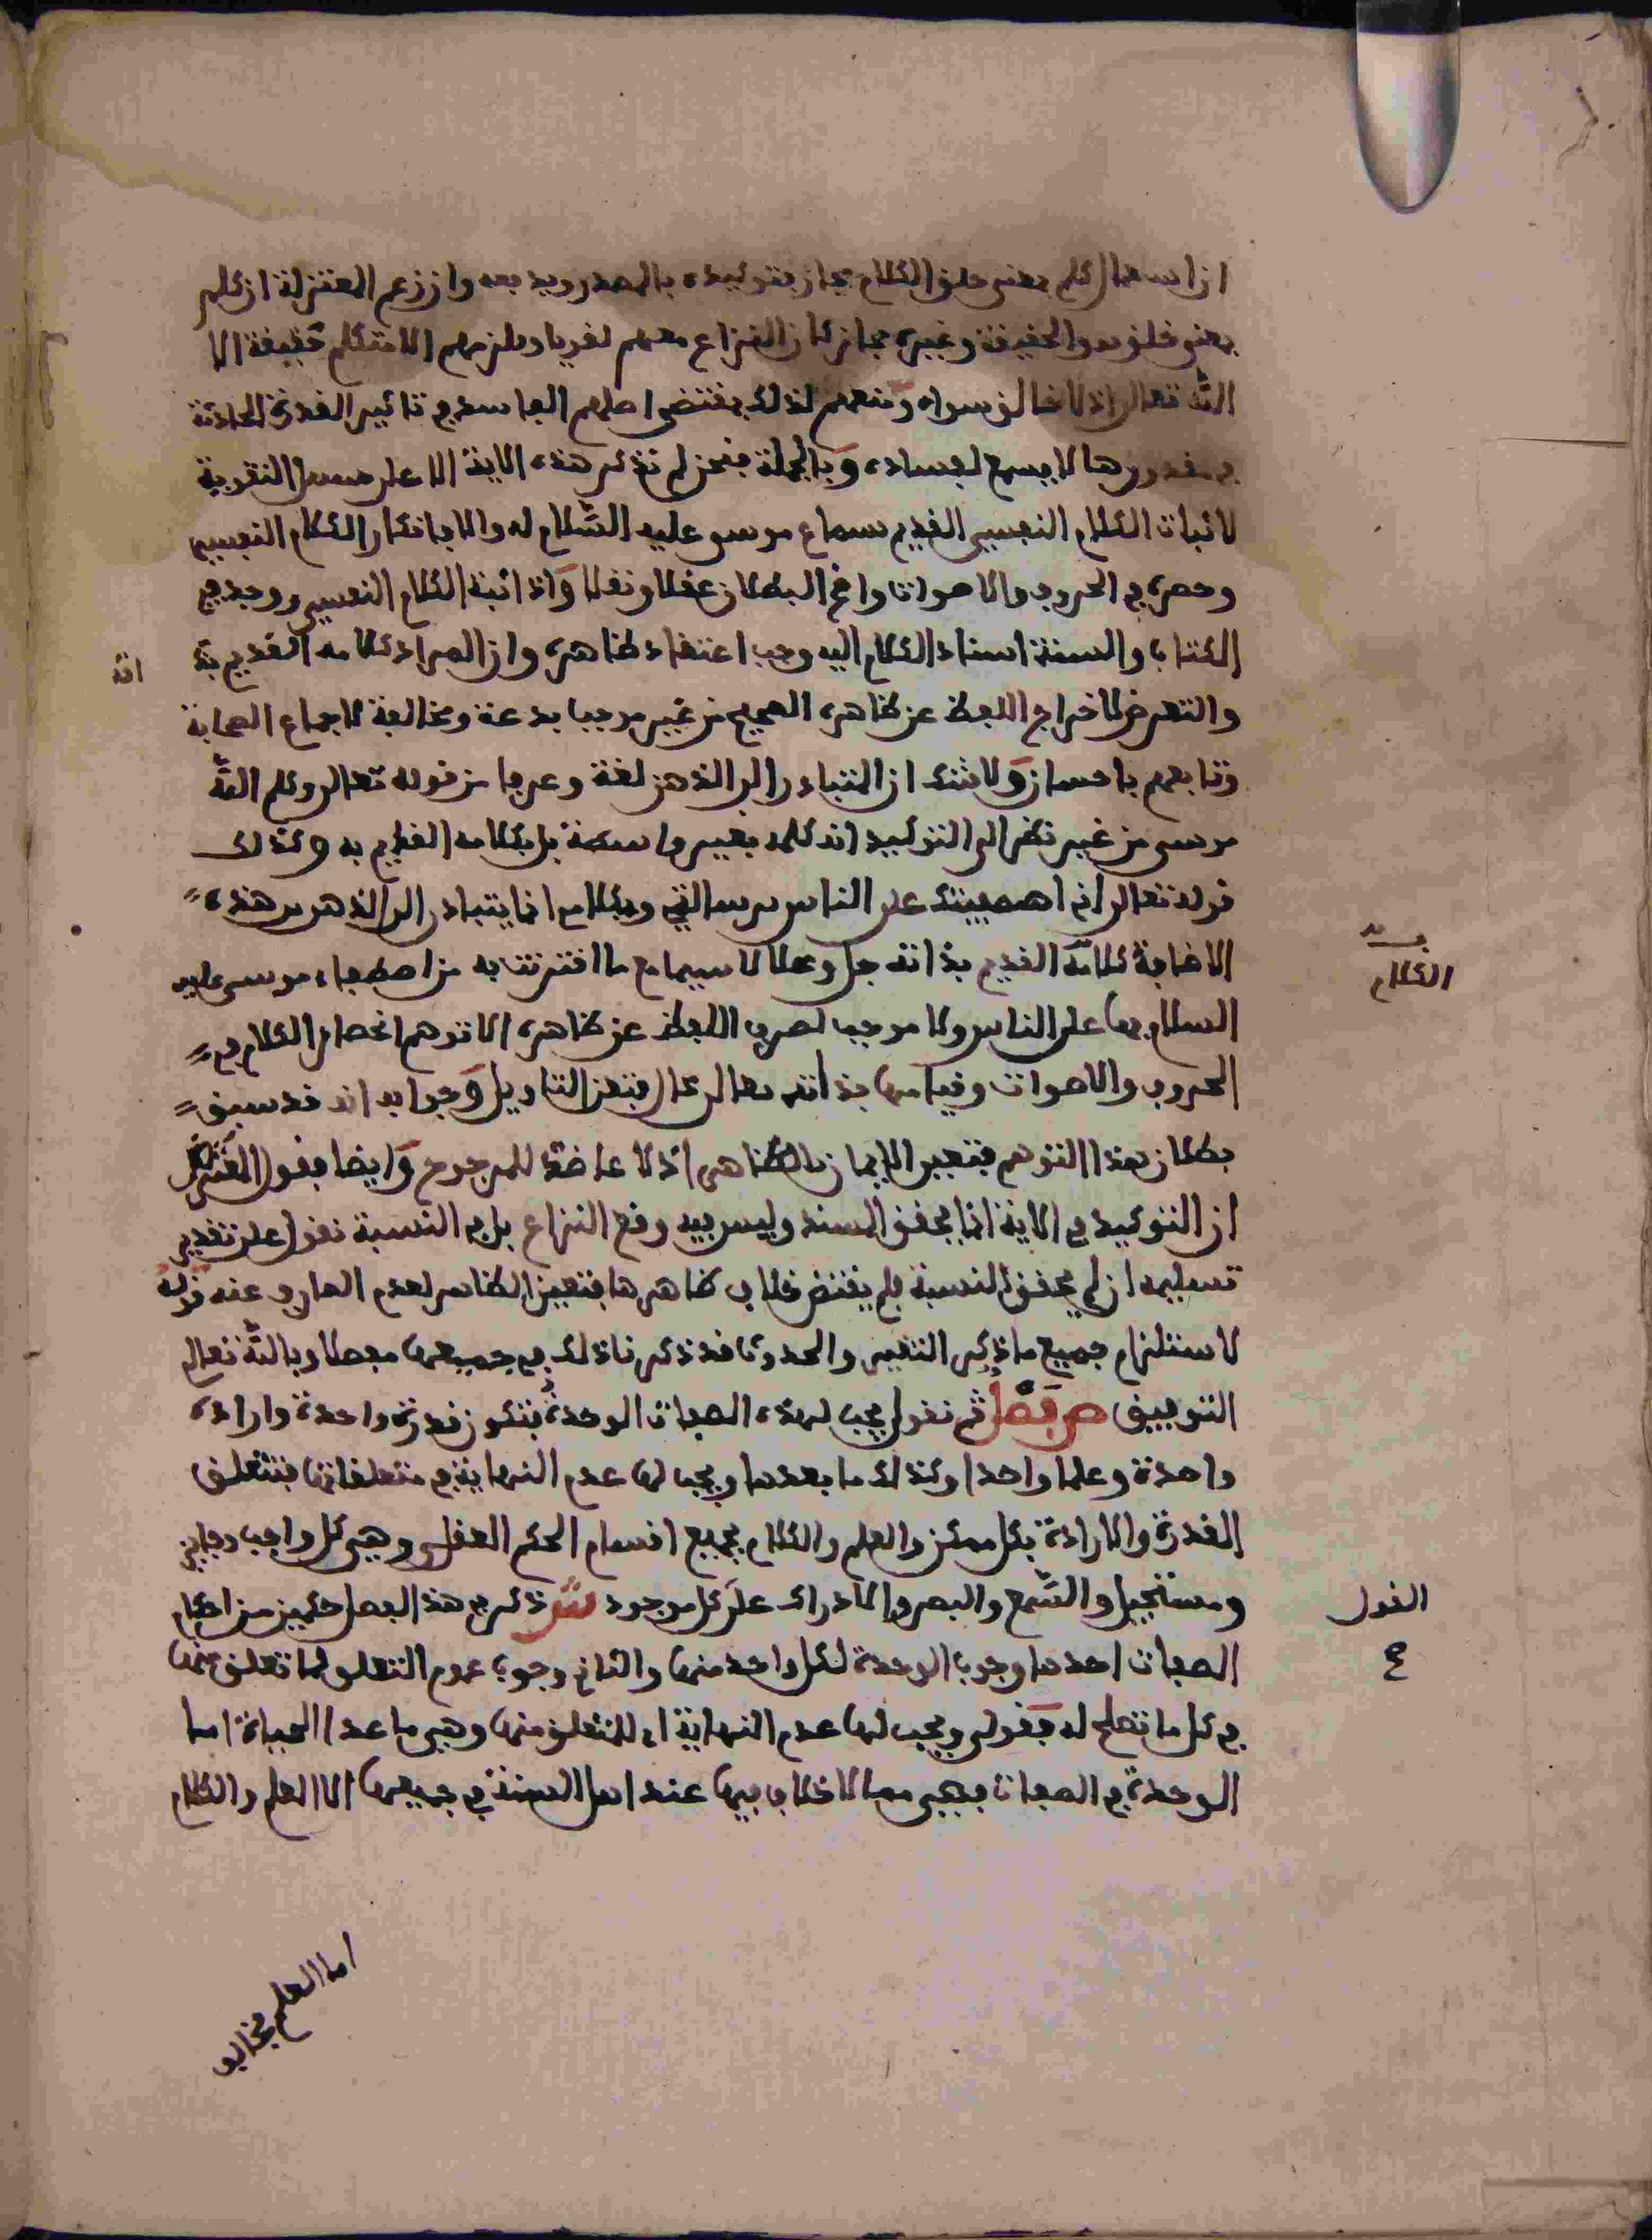 ان استعمال كلم بمعنى خلق الكلام مجاز بتوكيده بالمصدر ويدفعه وان زعم المعتزلة ان كلم
بمعنى خلق هو الحقيقة وغيره مجاز كان النزاع معهم لغويا ويلزمهم الا متكلم حقيقة الا
الله تعالى اذ لا خالق سواه ومنعهم لذلك بمقتضى اصلهم الفاسد في تاثير القدرة الحادثة
في مقدورها لا يسمع لفساده وبالجملة فنحن لم نذكر هذه الاية الا على التقوية
لاثبات الكلام النفسي القديم سماع موسى عليه السلام له والا فانكار الكلام النفسي
وحصره في الحروف والاصوات واضح البطلان عقلا ونقلا واذا اثبت الكلام النفسي ووجد في
الكتاب والسنة اسناد الكلام اليه وجب اعتقاد ظاهره وان المراد كلامه القديم بذ اته
والتعرض لاخراج اللفظ عن ظاهره الصحيح من غير موجب بدعة ومخالفة لاجماع الصحابة
وتابعهم باحسان ولا شك ان المتبادر الى الذهن لغة وعرفا من قوله تعالى وكلم الله
موسى من غير نظر الى التوكيد انه كلمه بغير واسطة بل بكلامه القديم به وكذلك
قوله تعالى اني اصطفيتك على الناس برسالتي وبكلامي انما يتبادر الى الذهن من هذه
الاضافة كلامه القديم بذاته جل وعلا لا سيما مع ما اقترنت به من اصطفاء موسى عليه
السلام بها على الناس ولا موجب لصرف اللفظ عن ظاهره الا توهم انحصار الكلام في
الحروف والاصوات وقيامها بذاته تعالى محال فتعين التاويل وجوابه انه قد سبق
بطلان هذا التوهم فتعين الايمان بالظاهر اذ لا عاضد للمرجوح وايضا فقول المعتزلي
ان التوكيد في الاية انما يحقق المسند وليس فيه وقع النزاع بل في النسبة نقول على تقدير
تسليمه ان لم يحقق النسبة فلم يقتض خلاف ظاهرها فتعين الظاهر لعدم الصارف عنه قوله
لاستلزام جميع ما ذكر التغير والحدوث قد ذكرنا ذلك في جميعها مفصلا وبالله تعالى
التوفيق ص فصل ثم نقول يجب لهذه الصفات الوحدة فتكون قدرة واحدة وارادة
واحدة وعلما واحدا وكذلك ما بعدها ويجب لها عدم النهاية في متعلقاتها فتتعلق
القدرة والارادة بكل ممكن والعلم والكلام بجميع اقسام الحكم العقلي وهي كل واجب وجايز
ومستحيل والسمع والبصر والادراك على كل موجود ش ذكر في هذا الفصل حكمين من احكام
الصفات احدهما وجوب الوحدة لكل واحد منها والثاني وجوب عموم التعلق لما تعلق منها
في كل ما تصلح له فقوله ويجب لها عدم النهاية اي للمتعلق منها وهي ما عدا الحياة اما
الوحدة في الصفات فهي مما لا خلاف فيها عند اهل السنة في جميعها الا العلم والكلام
اما العلم فخالف
الكلام
القول
٤